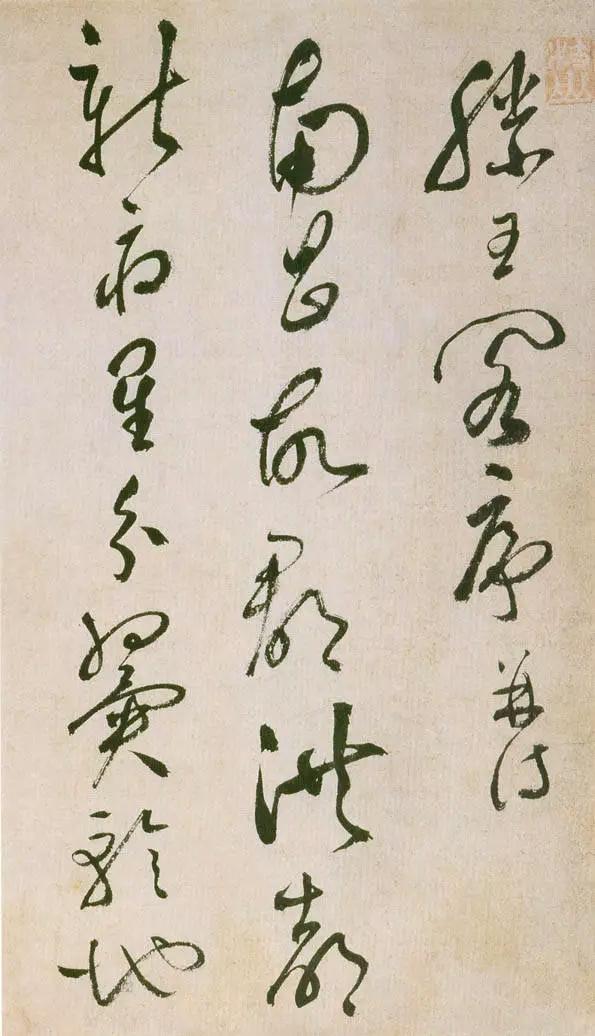 滕王阁序并诗
南昌故郡洪都
新府星分翼轸地